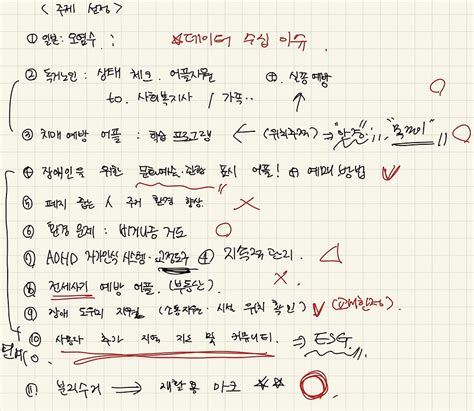 < 주제 선정 >
① 일본 : 오염수 : ☆데이터 수집 이슈
② 독거노인 : 상태 체크. 어플지물 ⊕. 실종 예방
to. 사회복지사 / 가족..
③ 치매 예방 어플 : 학습 프로그램 ← (위치추적) ⇒ "안경", "목걸이"
④ 장애인을 위한 문화예술·관람 표시 어플! ⊕ 예매 방법
⑤ 폐지 줍는 人 주거 환경 향상.
⑥ 환경 문제 : 바겨나증 거도
⑦ ADHD 자가인식 시스템·교정도구 ④ 지속적 관리.
⑧ 전세사기 예방 어플. (부동산)
⑨ 장애 도우미 지원 (소통지원· 시설 위치 확인)
⑩ 사용자 추가 지역 지도 및 커뮤니티. ⇒ ESG.
⑪ 분리수거 → 재활용 마크 ☆☆